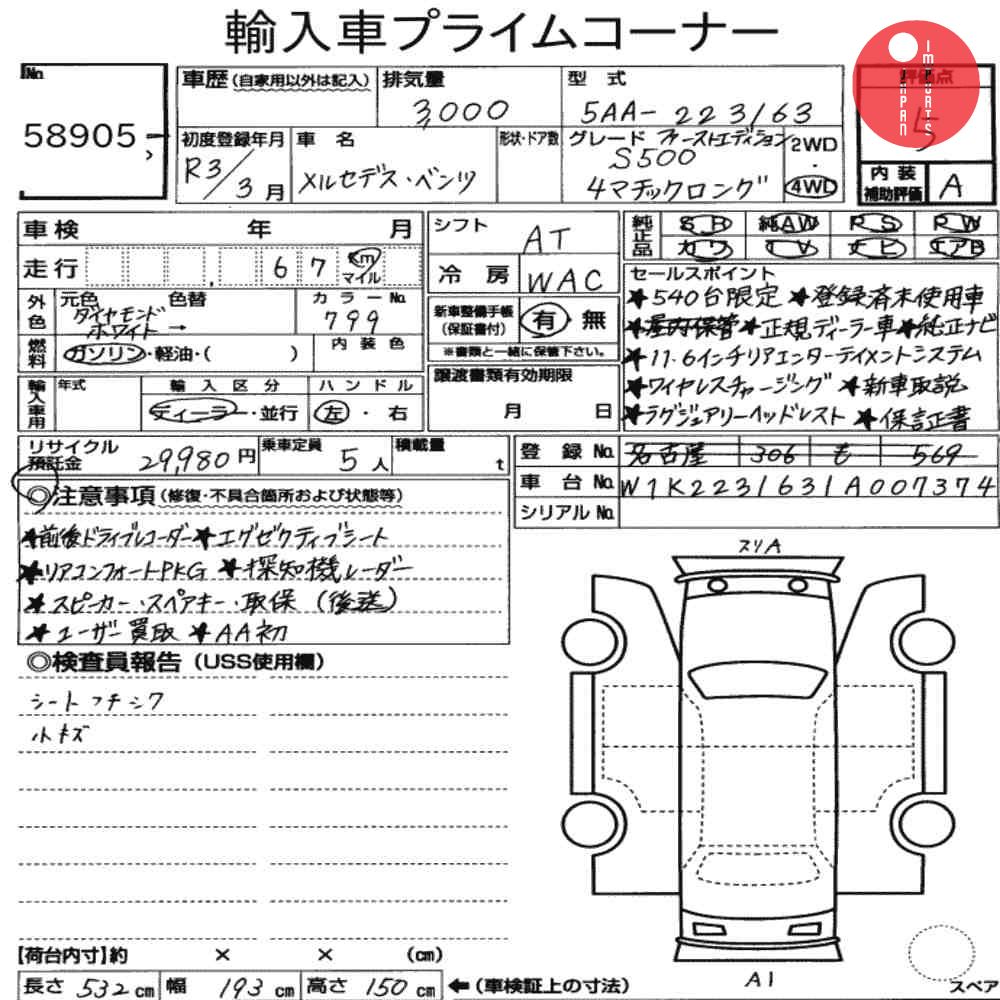 輸入車プライムコーナー
JAPAN IMPORTS
No.
58905
車歴(自家用以外は記入)
排気量
3,000
型式
5AA-223163
評価点
5
初度登録年月
R3/3月
車名
メルセデス・ベンツ
形状・ドア数
グレード
ファーストエディション
S500
4マチックロング
2WD
・
4WD
内装
補助評価
A
車検 年 月
走行 67 Km マイル
外色
元色 色替
ダイヤモンド
ホワイト →
カラーNo.
799
燃料
ガソリン・軽油・( )
内装色
輸入車用
年式
輸入区分
ディーラー・並行
ハンドル
左・右
シフト
AT
冷房
WAC
新車整備手帳
(保証書付)
有・無
※書類と一緒に保管下さい。
譲渡書類有効期限
月 日
純正品
SR 純AW RS PW
カワ TV ナビ エアB
セールスポイント
★540台限定 ★登録済未使用車
★屋内保管 ★正規ディーラー車 ★純正ナビ
★11.6インチリアエンターテイメントシステム
★ワイヤレスチャージング ★新車取説
★ラグジュアリーヘッドレスト ★保証書
リサイクル
預託金
29,980円
乗車定員
5人
積載量
t
登録No. 名古屋 306 も 569
車台No. W1K2231631A007374
シリアルNo.
◎注意事項(修復・不具合箇所および状態等)
★前後ドライブレコーダー ★エグゼクティブシート
★リアコンフォートPKG ★探知機レーダー
★スピーカー・スペアキー・取保(後送)
★ユーザー買取 ★AA初
◎検査員報告(USS使用欄)
シートフチシワ
小キズ
スリA
A1
スペア
【荷台内寸】約 × × (cm)
長さ532cm 幅193cm 高さ150cm ←(車検証上の寸法)